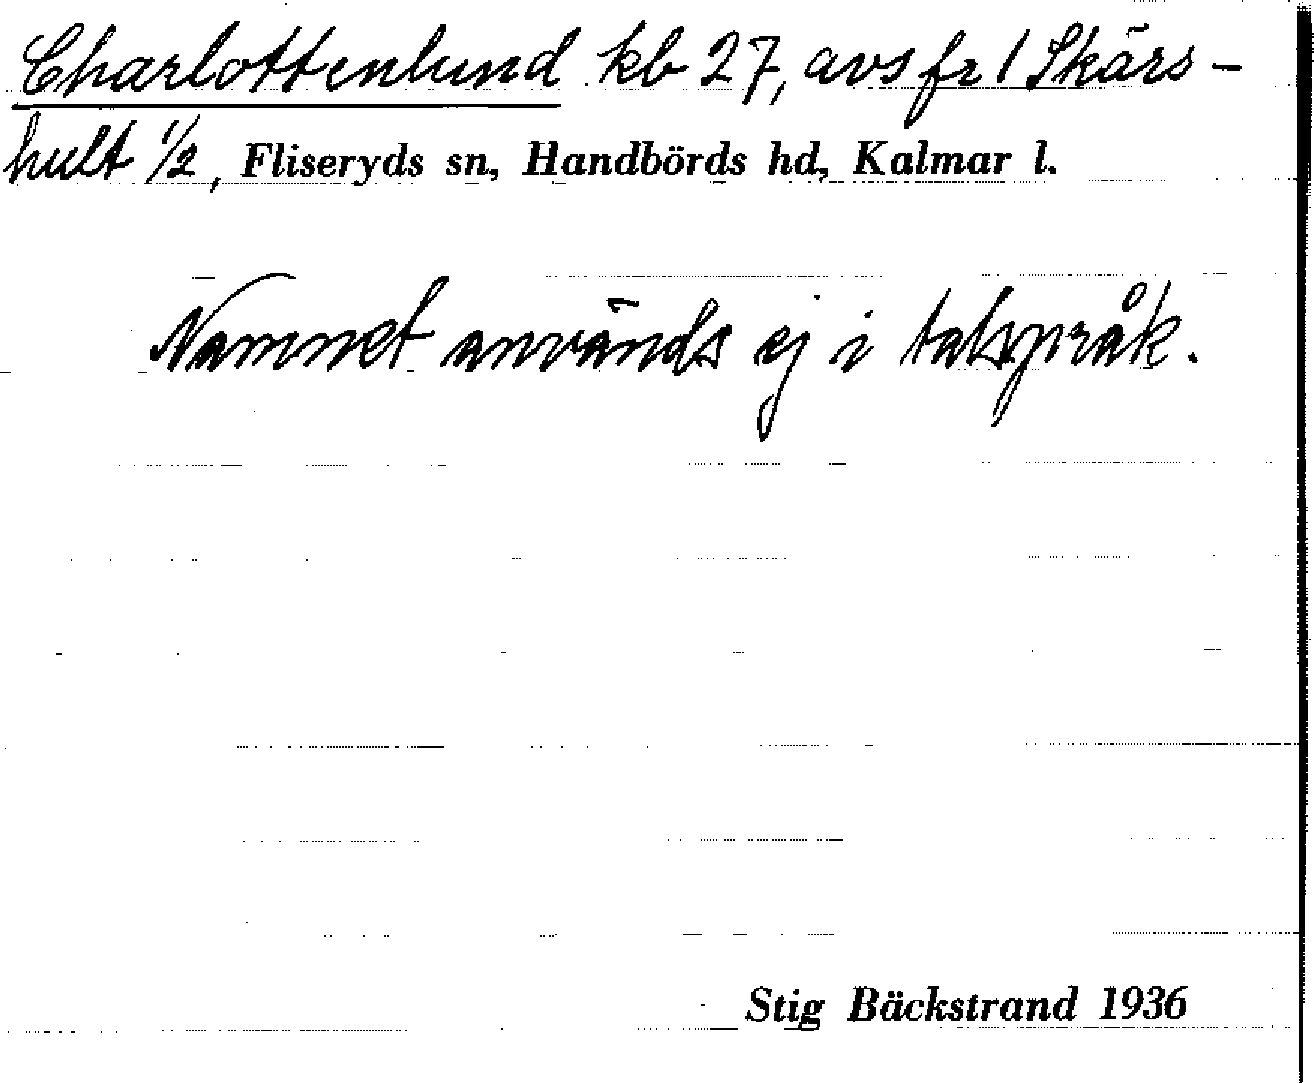 Charlottenlund kb 27, avs fr 1 Skärs-
hult 1/2, Fliseryds sn, Handbörds hd, Kalmar l.
Namnet används ej i talspråk.
Stig Bäckstrand 1936